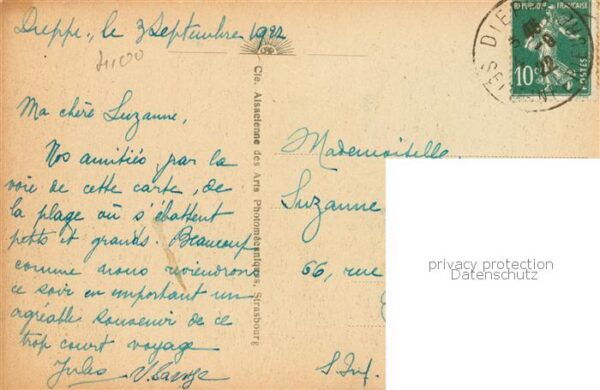 Dieppe, le 3 Septembre 1922
Ma chère Suzanne,
Nos amitiés par la
voie de cette carte, de
la plage où s'ébattent
petits et grands. Beaucoup
comme nous reviendrons
ce soir en emportant un
agréable souvenir de ce
trop court voyage
Jules
Cie. Alsacienne des Arts Photomécaniques, Strasbourg
REPUBLIQUE FRANÇAISE
10c
POSTES
Mademoiselle
Suzanne
66, rue
S. Inf.
privacy protection
Datenschutz